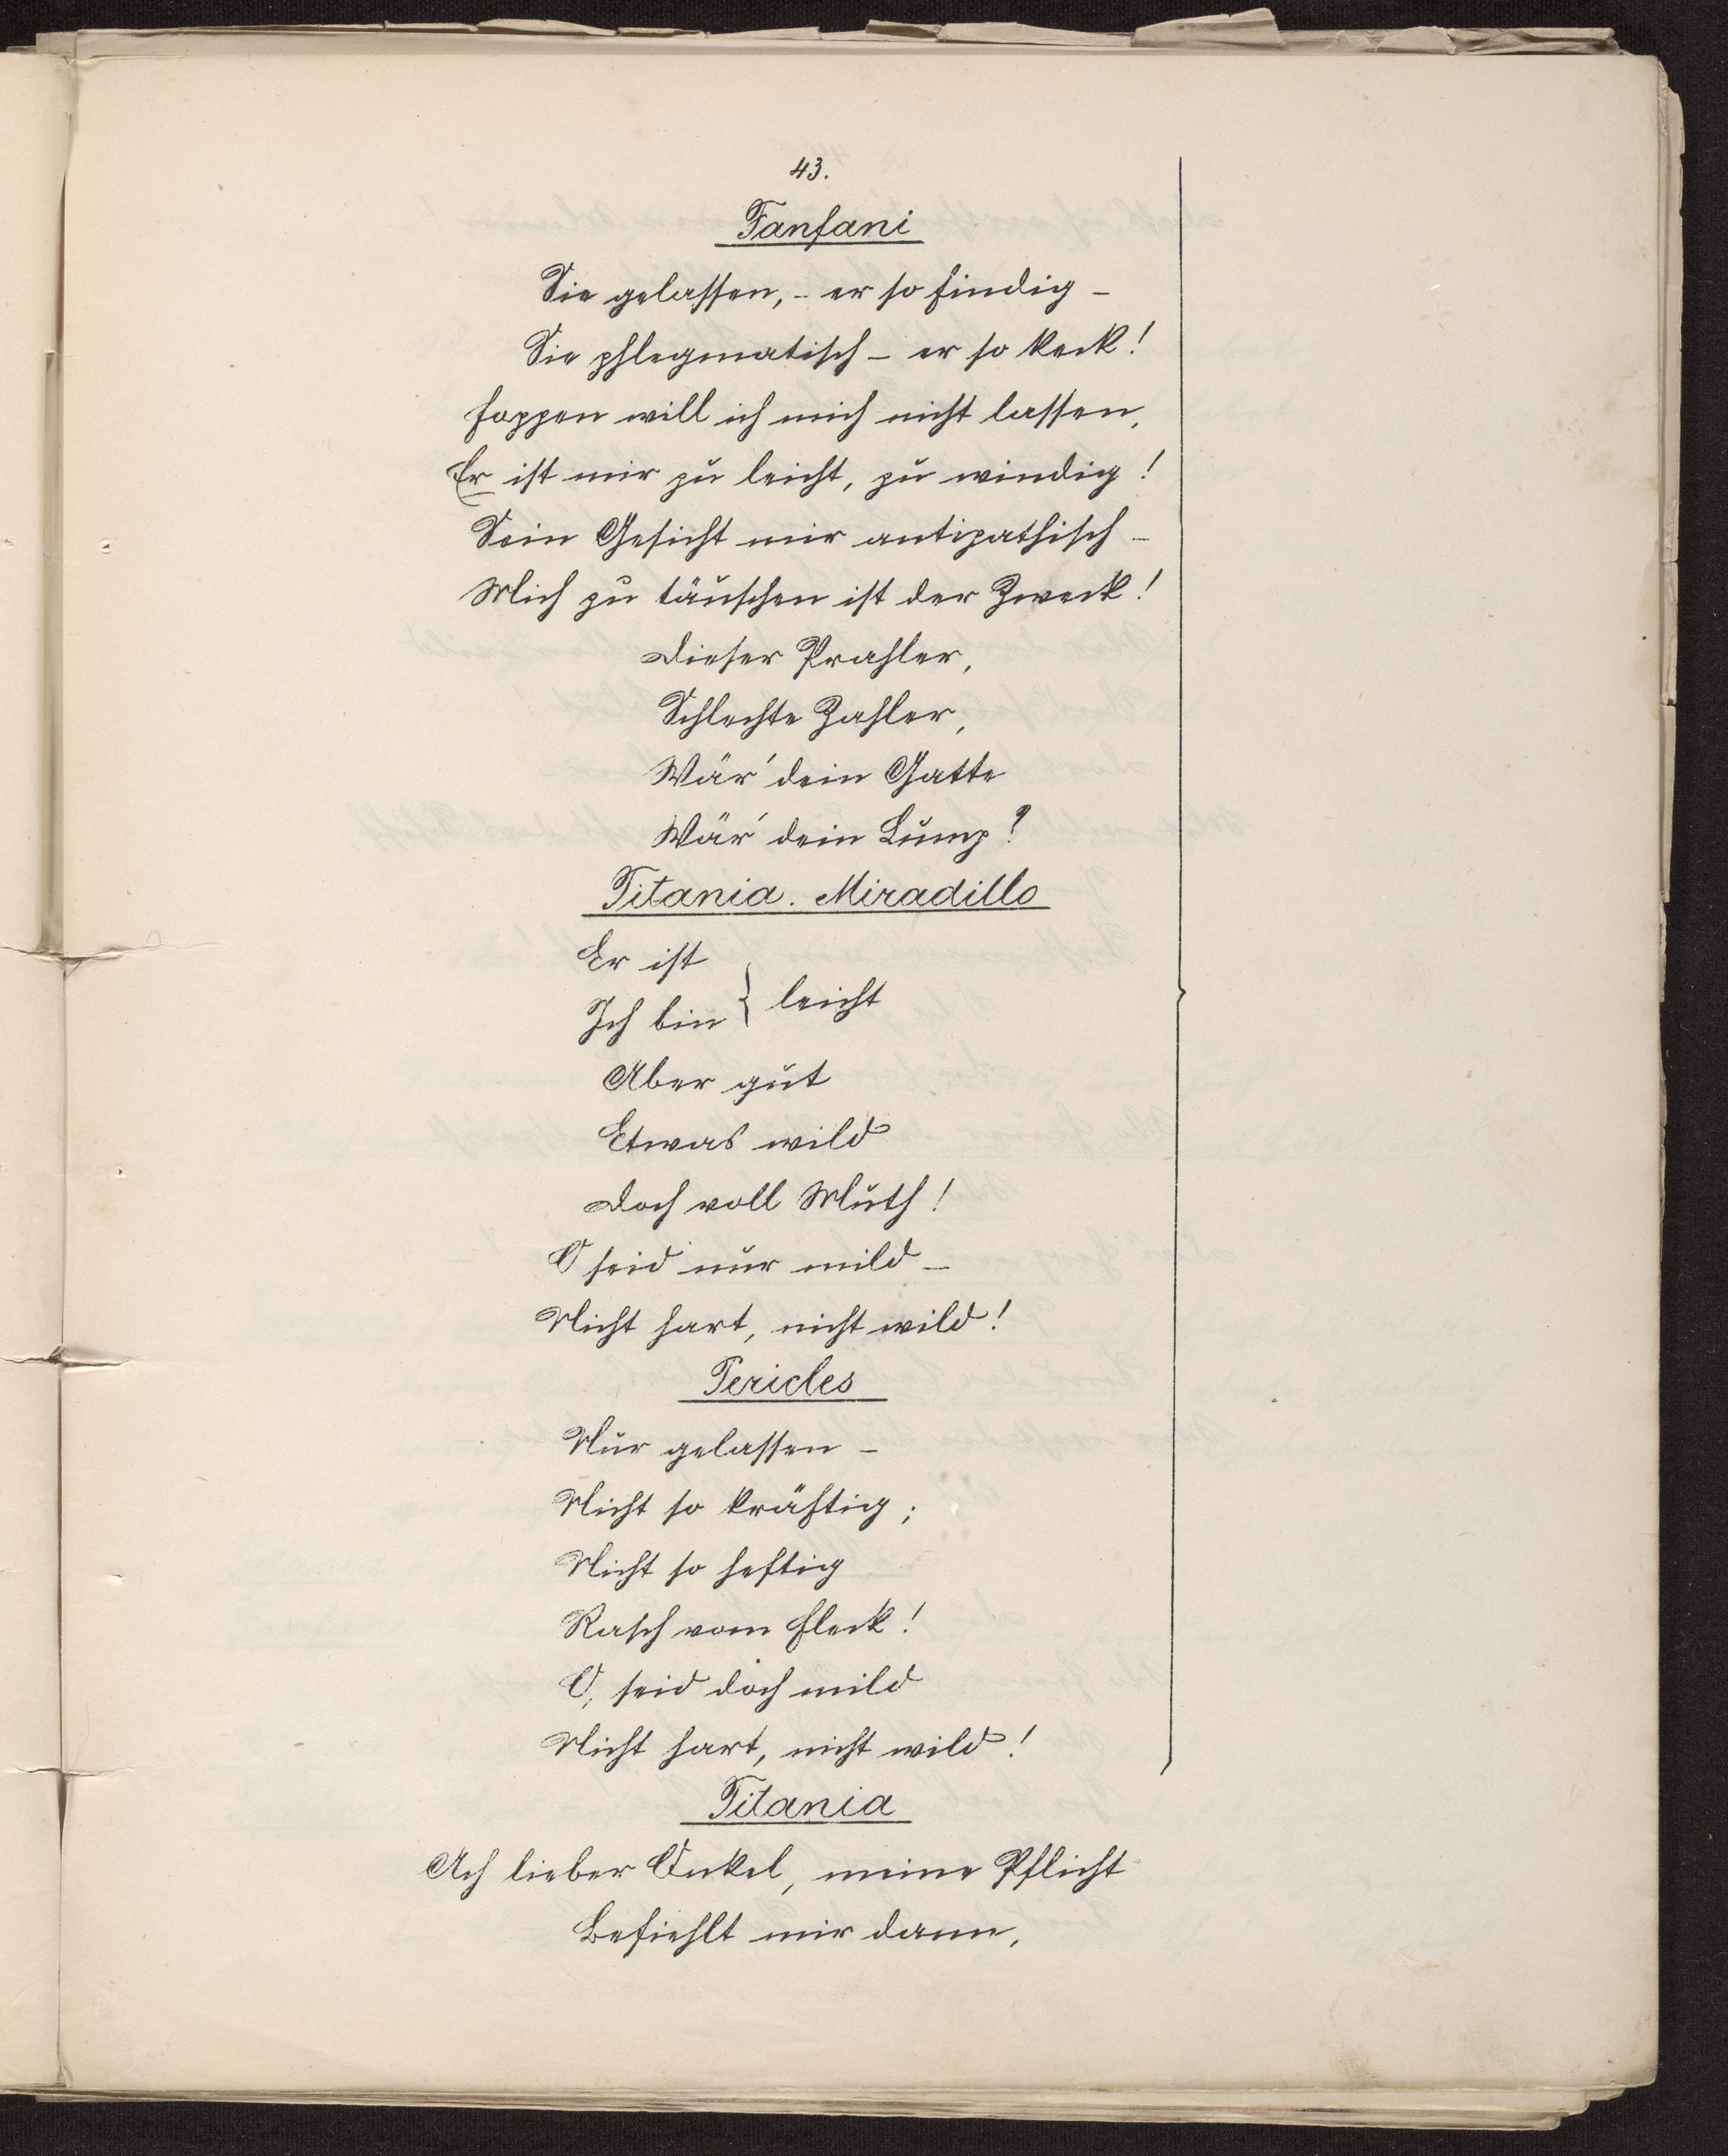 43.
Fanfani
Sie gelassen, - er so findig -
Sie phlegmatisch - er so keck!
Foppen will ich mich nicht lassen,
Er ist mir zu leicht, zu windig!
Sein Gesicht mir antipathisch -
Mich zu täuschen ist der Zweck!
Dieser Prahler,
Schlechte Zahler,
Wär' dein Gatte
Wär' dein Lump?
Titania. Miradillo
Er ist
Ich bin } leicht
Aber gut
Etwas wild
Doch voll Muth!
O seid nur mild -
Nicht hart, nicht wild!
Pericles
Nur gelassen -
Nicht so kräftig;
Nicht so heftig
Rasch vom Fleck!
O, seid doch mild
Nicht hart, nicht wild!
Titania
Ach lieber Onkel, meine Pflicht
Befiehlt mir dann,